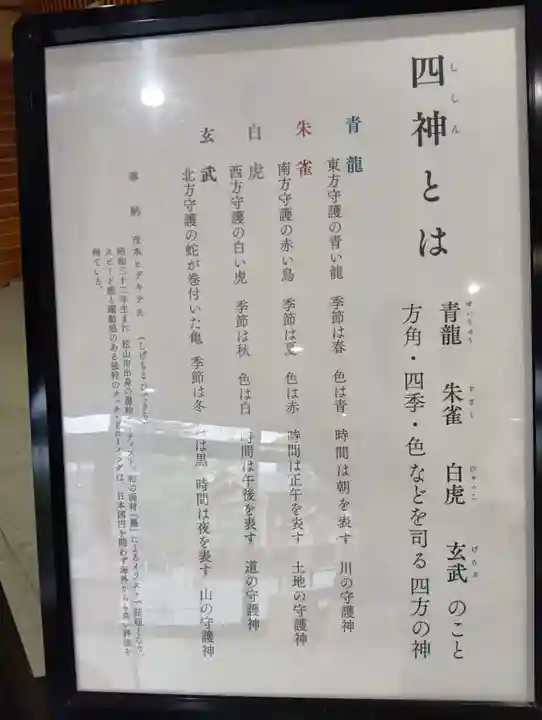 四神とは
ししん
青龍 朱雀 白虎 玄武 のこと
せいりゅう すざく びゃっこ げんぶ
方角・四季・色などを司る四方の神
青龍 東方守護の青い龍 季節は春 色は青 時間は朝を表す 川の守護神
朱雀 南方守護の赤い鳥 季節は夏 色は赤 時間は正午を表す 土地の守護神
白虎 西方守護の白い虎 季節は秋 色は白 時間は午後を表す 道の守護神
玄武 北方守護の蛇が巻付いた亀 季節は冬 は黒 時間は夜を表す 山の守護神
奉納 茂本ヒデキチ 氏 (しげもとひできち)
昭和三十二年生まれ 松山市出身の墨絵 ティスト。和の画材『墨』によるイラスト
スピード感と躍動感のある独特のタッチ ドローイングは、日本国内を問わず海外から 高い評価を
得ている。